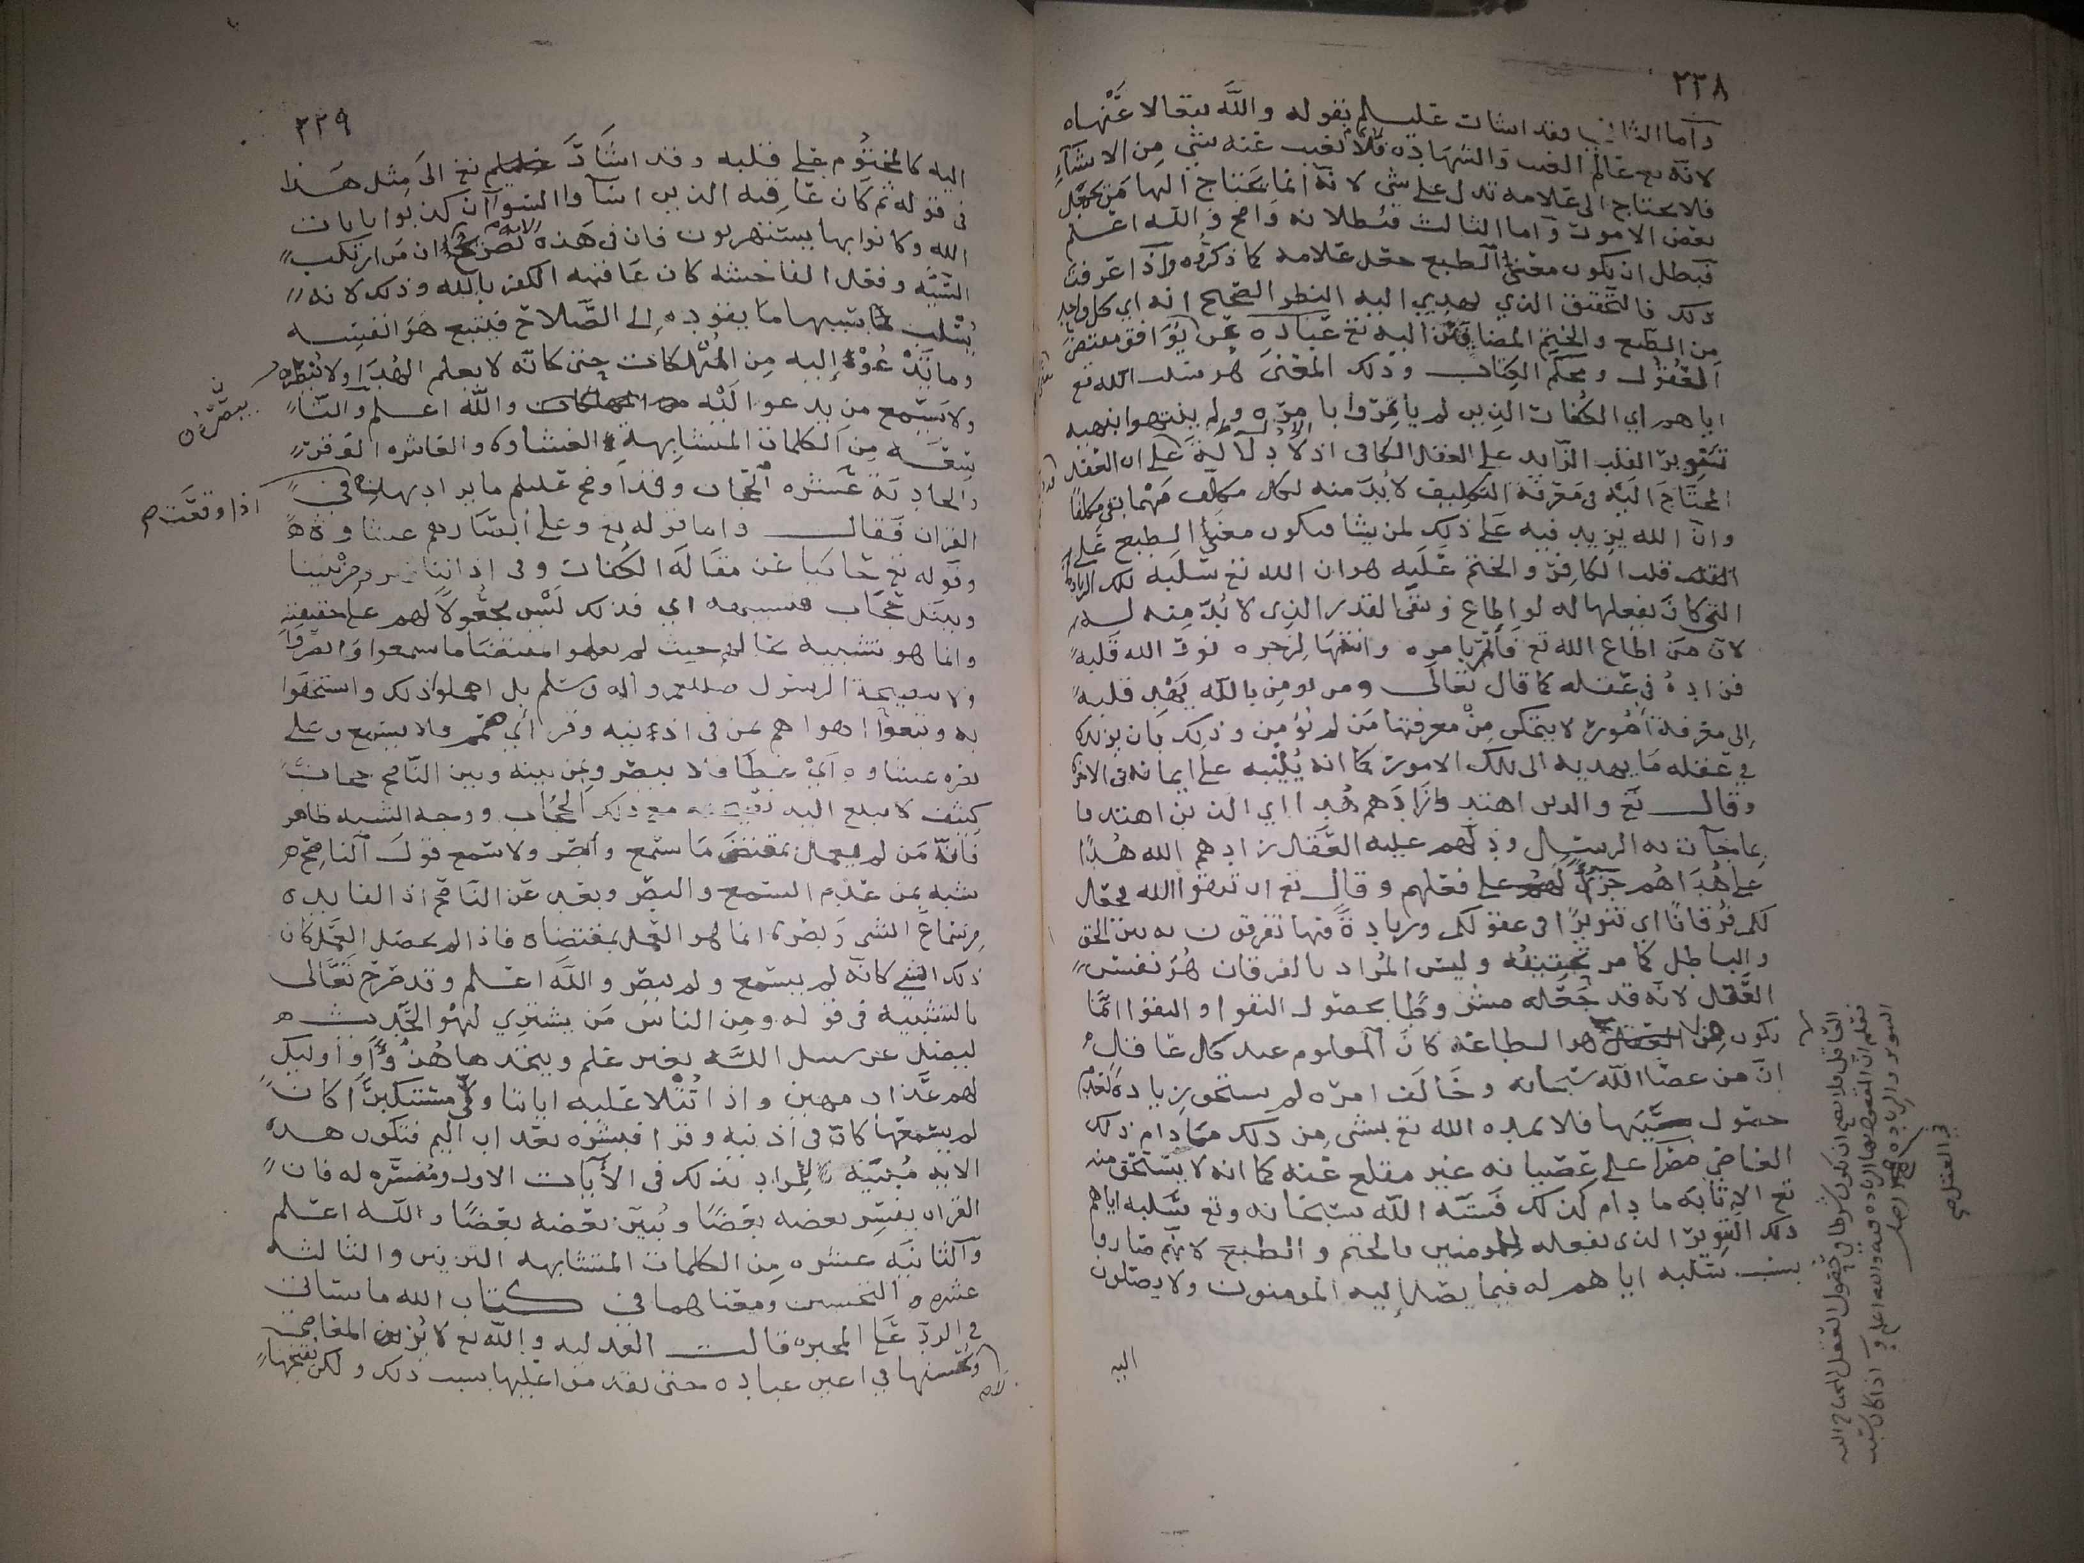 ٢٣٨
وأما الثاني فقد أشار عليلم بقوله والله تعالا عنها
لانه تع عالم الغيب والشهاده فلا يغيب عنه شي من الاشآء
فلا يحتاج الى علامه تدل على شي لانه انما يحتاج الها من يجهل
بعض الامور وأما الثالث فبطلانه واضح والله اعلم
فبطل ان يكون معنى الطبع جعل علامه كما ذكروه واذا عرفت
ذلك فالتحقيق الذي يهدي اليه النظر الصحيح انه اي كل واحد
من الطبع والختم المضافين اليه تع عباره عن يوافق مقتضى
العقول ومحكم الكتاب وذلك المعنى هو سلب الله تع
اياهم اي الكفار الذين لم ياتمروا بامره ولم ينتهوا بنهيه
تنوير القلب الزايد على العقل الكافي اذ لا دلالة على ان العقل
المحتاج اليه في معرفة التكليف لابد منه لكل مكلف مهما بقي مكلفا
وان الله يزيد فيه على ذلك لمن يشا فيكون معنى الطبع على
قلب الكافر والختم عليه هو ان الله تع سلبه تلك الزياده
التي كان يفعلها له لو اطاع وبقى القدر الذي لا بد منه له
لان من اطاع الله تع فأتمر بامره وانتها لزجره نور الله قلبه
فزاده في عقله كما قال تعالى ومن يومن بالله يهد قلبه
الى معرفة امور لا يتمكن من معرفتها من لم يؤمن وذلك بان يزيده
في عقله ما يهديه الى تلك الامور كما انه يثيبه على ايمانه في الاخره
وقال تع والذين اهتدوا زادهم هدا اي الذين اهتدوا
بما جآت به الرسل ودلهم عليه العقل زادهم الله هدًا
على هداهم جزآء على فعلهم وقال تع ان تتقوا الله يجعل
لكم فرقانًا اي تنويرًا في عقولكم وزيادة فيها تفرقون به بين الحق
والباطل كما مر تحقيقه وليس المراد بالفرقان هو نفس
العقل لانه قد جعله مشروطا بحصول التقوا والتقوا انما
تكون هو الطاعه كان المعلوم عند كل عاقل
ان من عصا الله سبحانه وخالف امره لم يستحق زيادة لعدم
حصول سببها فلا يمده الله تع بشي من ذلك ما دام ذلك
العاصي مصرا على عصيانه غير مقلع عنه كما انه لا يستحق منه
تع الاثابه ما دام كذلك فشبه الله سبحانه وتع سلبه اياهم
ذلك التنوير الذي يفعله للمومنين بالختم والطبع لانهم صاروا
بسبب سلبه اياهم له فيما يصل اليه المومنون ولا يصلون
اليه
العاقل فلا يصح ان يكون شرطا في حصول العقل المحتاج اليه
فعلم ان المقصود بها الزياده فيه والله اعلم واذا كان سبب
التنوير والزياده
في العقل صح
٢٣٩
اليه كالمختوم على قلبه وقد اشار عليلم تع الى مثل هذا
في قوله ثم كان عاقبه الذين اسآوا السوآ ان كذبوا بايات
الله وكانوا بها يستهزيون فان في هذه الايه تصريحًا ان من ارتكب
السيّه وفعل الفاحشه كان عاقبته الكفر بالله وذلك لانه
يسلب بسببها ما يقوده الى الصلاح فيتبع هوا نفسه
وما تدعوه اليه من المهلكات حتى كانه لا يعلم الهدا ولا يبصره
ولا يستمع من يدعو اليه والله اعلم والتا
سعه من الكلمات المتشابهة الغشاوه والعاشره الوقر
والحاديه عشره الحجاب وقد اوضح عليلم ما يراد بها في
اذا وقعت صح
القران فقال واما قوله تع وعلى ابصارهم غشاوة
وقوله تع حاكيا عن مقالة الكفار وفي اذاننا وقر ومن بيننا
وبينك حجاب فتشبيه اي فذلك ليس مجعولا لهم على حقيقته
وانما هو تشبيه بحالهم حيث لم يعملوا بمقتضا ما سمعوا وابصروا
ولا بنصيحة الرسول صللم واله وسلم بل اهملوا ذلك واستخفوا
به وتبعوا اهواهم بمن في اذنيه وقر اي صمم ولا يستمع وعلى
بصره غشاوه اي غطا ولا يبصر ومن بينه وبين الناصح حجاب
كثيف لا يبلغ اليه مع ذلك الحجاب ووجه الشبه ظاهر
فانه من لم يعمل بمقتضى ما سمع وابصر ولا سمع قول الناصح
شبه بمن عدم السمع والبصر وبعد عن الناصح اذ الفايده
من سماع الشي وبصره انما هو العمل بمقتضاه فاذا لم يحصل العمل كان
ذلك الشي كانه لم يسمع ولم يبصر والله اعلم وقد صرح تعالى
بالتشبيه في قوله ومن الناس من يشتري لهو الحديث
ليضل عن سبيل الله بغير علم ويتخذها هزوًا اوليك
لهم عذاب مهين واذا تتلا عليه اياتنا ولى مستكبرًا كان
لم يسمعها كان في اذنيه وقرا فبشره بعذاب اليم فتكون هذه
الايه مبينه للمراد بذلك في الأيات الاول ومفسره له فان
القران يفسر بعضه بعضًا ويبين بعضه بعضًا والله اعلم
والثانيه عشره من الكلمات المتشابهه التزيين والثالثه
عشره التحسين ومعناهما في كتاب الله ما سياتي
في الرد على المجبره قالت العدليه والله تع لا يزين المعاصي
ولا يحسنها في اعين عباده حتى يقدمون عليها بسبب ذلك ولكن يقبحها